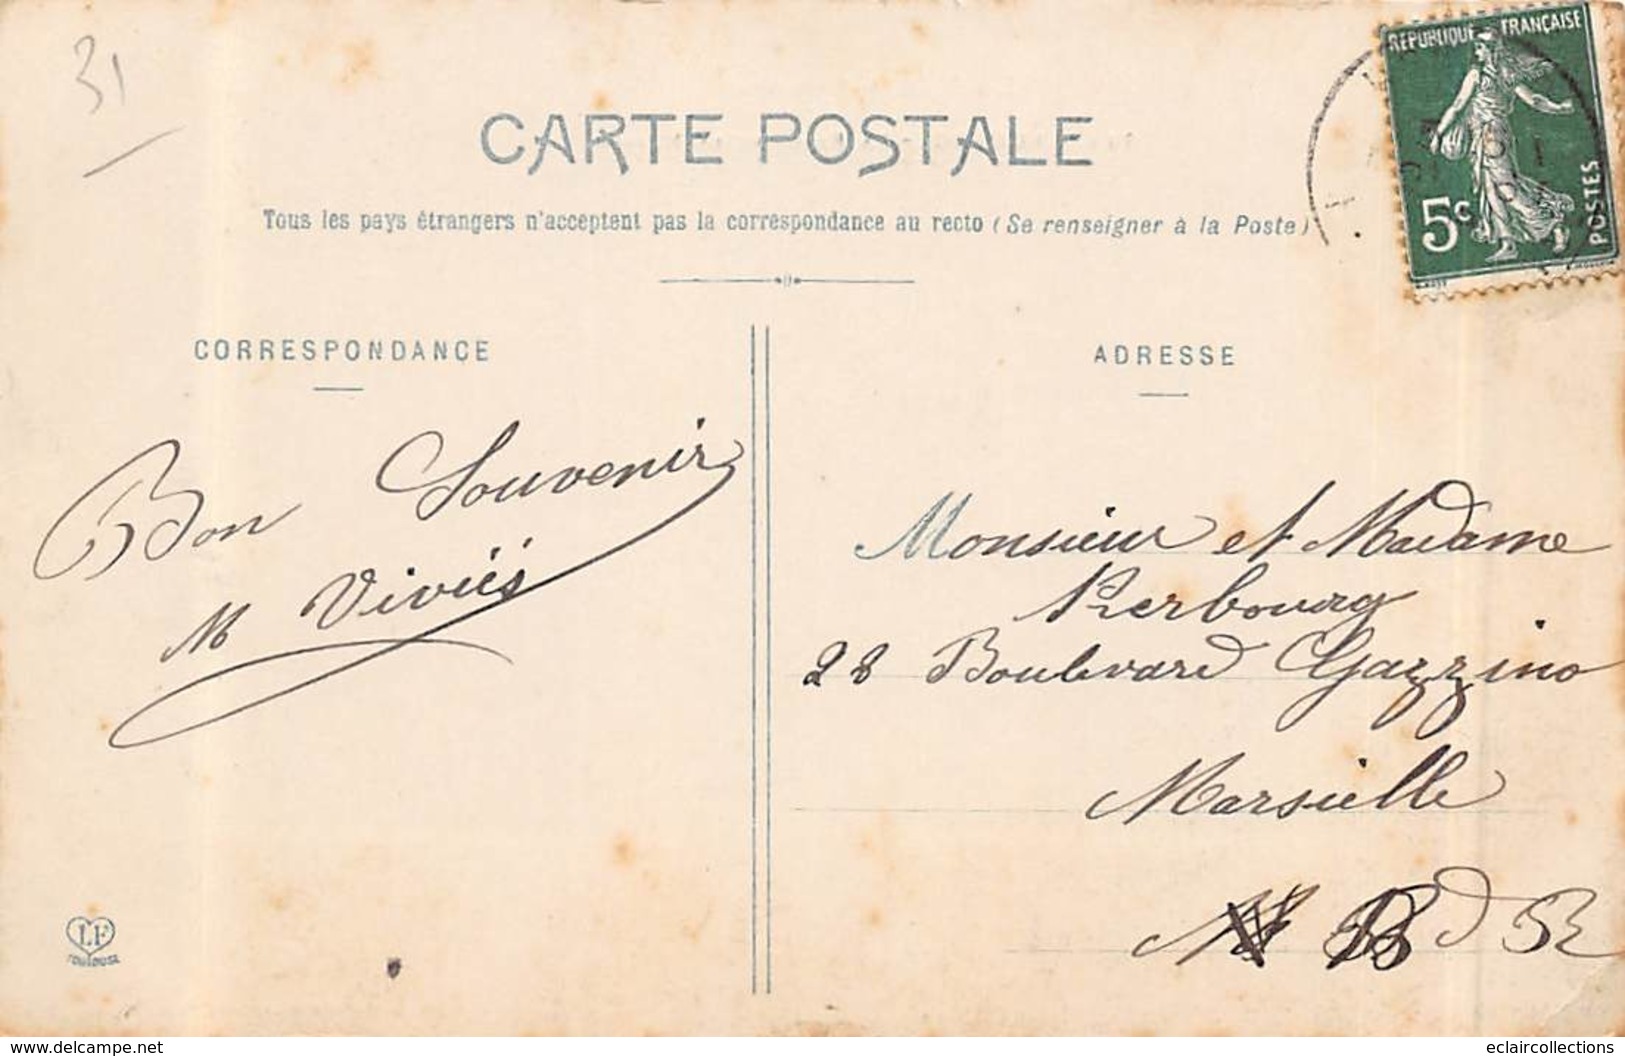 31
RÉPUBLIQUE FRANÇAISE
5c
POSTES
CARTE POSTALE
Tous les pays étrangers n'acceptent pas la correspondance au recto (Se renseigner à la Poste)
CORRESPONDANCE
ADRESSE
Bon Souvenir
M Viviés
Monsieur et Madame
Kerbourg
28 Boulevard Gazzino
Marsielle
B d R
LF
TOULOUSE
www.delcampe.net
eclaircollections